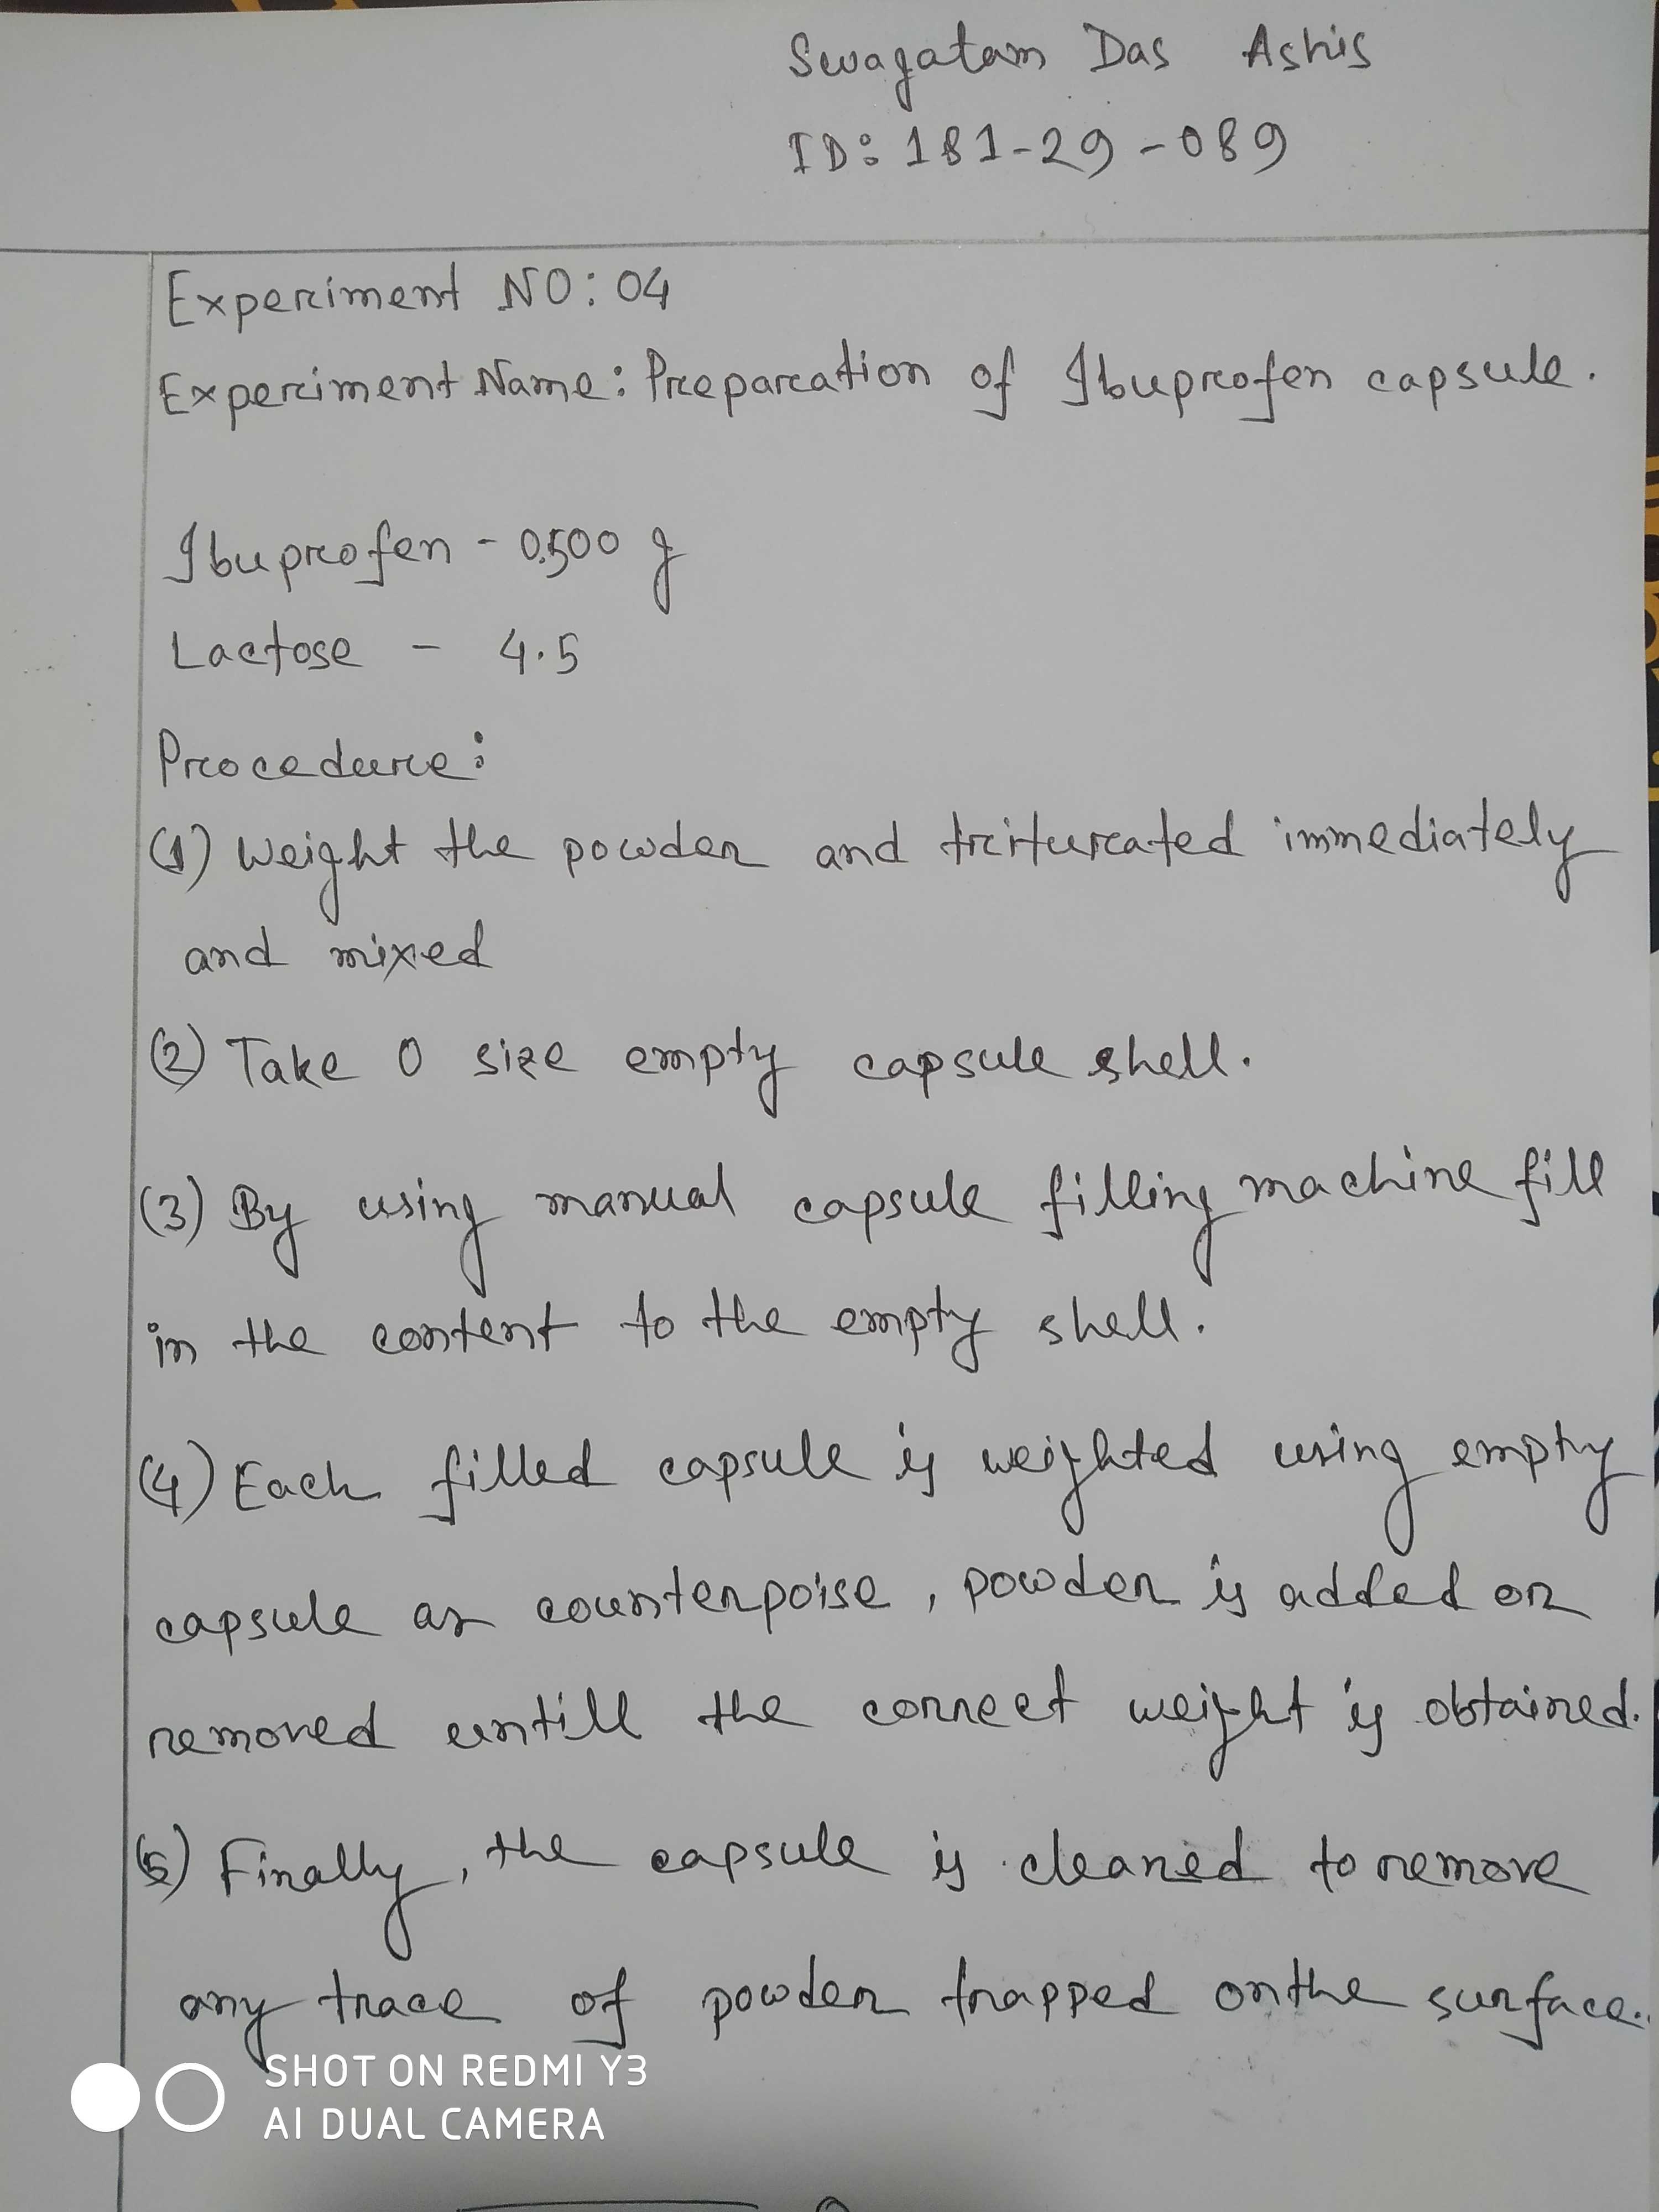 Swagatam Das Ashis
ID: 181-29-089
Experiment NO: 04
Experiment Name: Preparation of Ibuprofen capsule.
Ibuprofen - 0.500 g
Lactose - 4.5
Procedure:
(1) Weight the powder and triturated immediately
and mixed
(2) Take 0 size empty capsule shell.
(3) By using manual capsule filling machine fill
in the content to the empty shell.
(4) Each filled capsule is weighted using empty
capsule as counterpoise, powder is added or
removed untill the correct weight is obtained.
(5) Finally, the capsule is cleaned to remove
any trace of powder trapped on the surface.
SHOT ON REDMI Y3
AI DUAL CAMERA